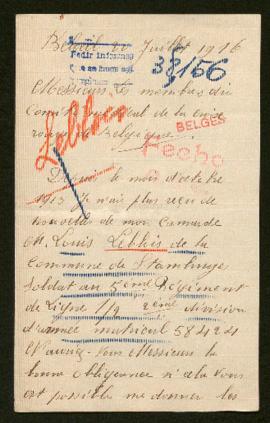 Juillet 1916
Pedir informes
38/156
Messieurs les membres du
Comité de la croix
rouge de Belgique
BELGES
Fecho
Depuis le mois d'octobre
1915 je n'ais plus reçu de
nouvelles de mon camarade
M. Louis Leblus de la
Commune de Stambruge
Soldat au 5eme Régiment
de Ligne 1/2 2eme division
d'armée matricul 58424
N'auriez-Vous Messieurs la
bonne obligeance si cela vous
est possible me donner les